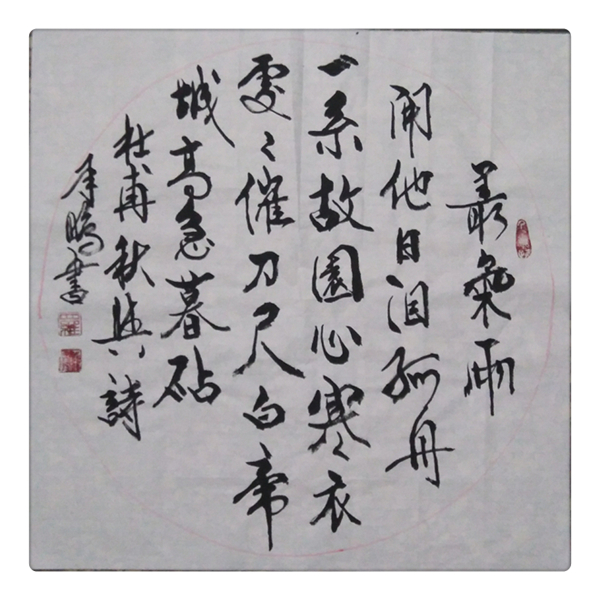 叢菊兩
開他日泪孤舟
一系故園心寒衣
處々催刀尺白帝
城高急暮砧
杜甫秋興詩
鵬書